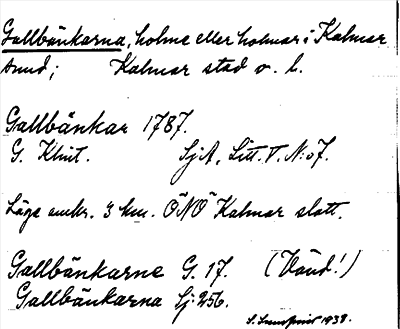 Gallbänkarna, holme eller holmar i Kalmar
sund; Kalmar stad o. l.
Gallbänkar 1787.
G. Klint. SjA, Litt. T. N:o 7.
Läge omkr. 3 km. ÖNÖ Kalmar slott.
Gallbänkarne G. 17. (Vänd!)
Gallbänkarna Lj: 256.
1938.